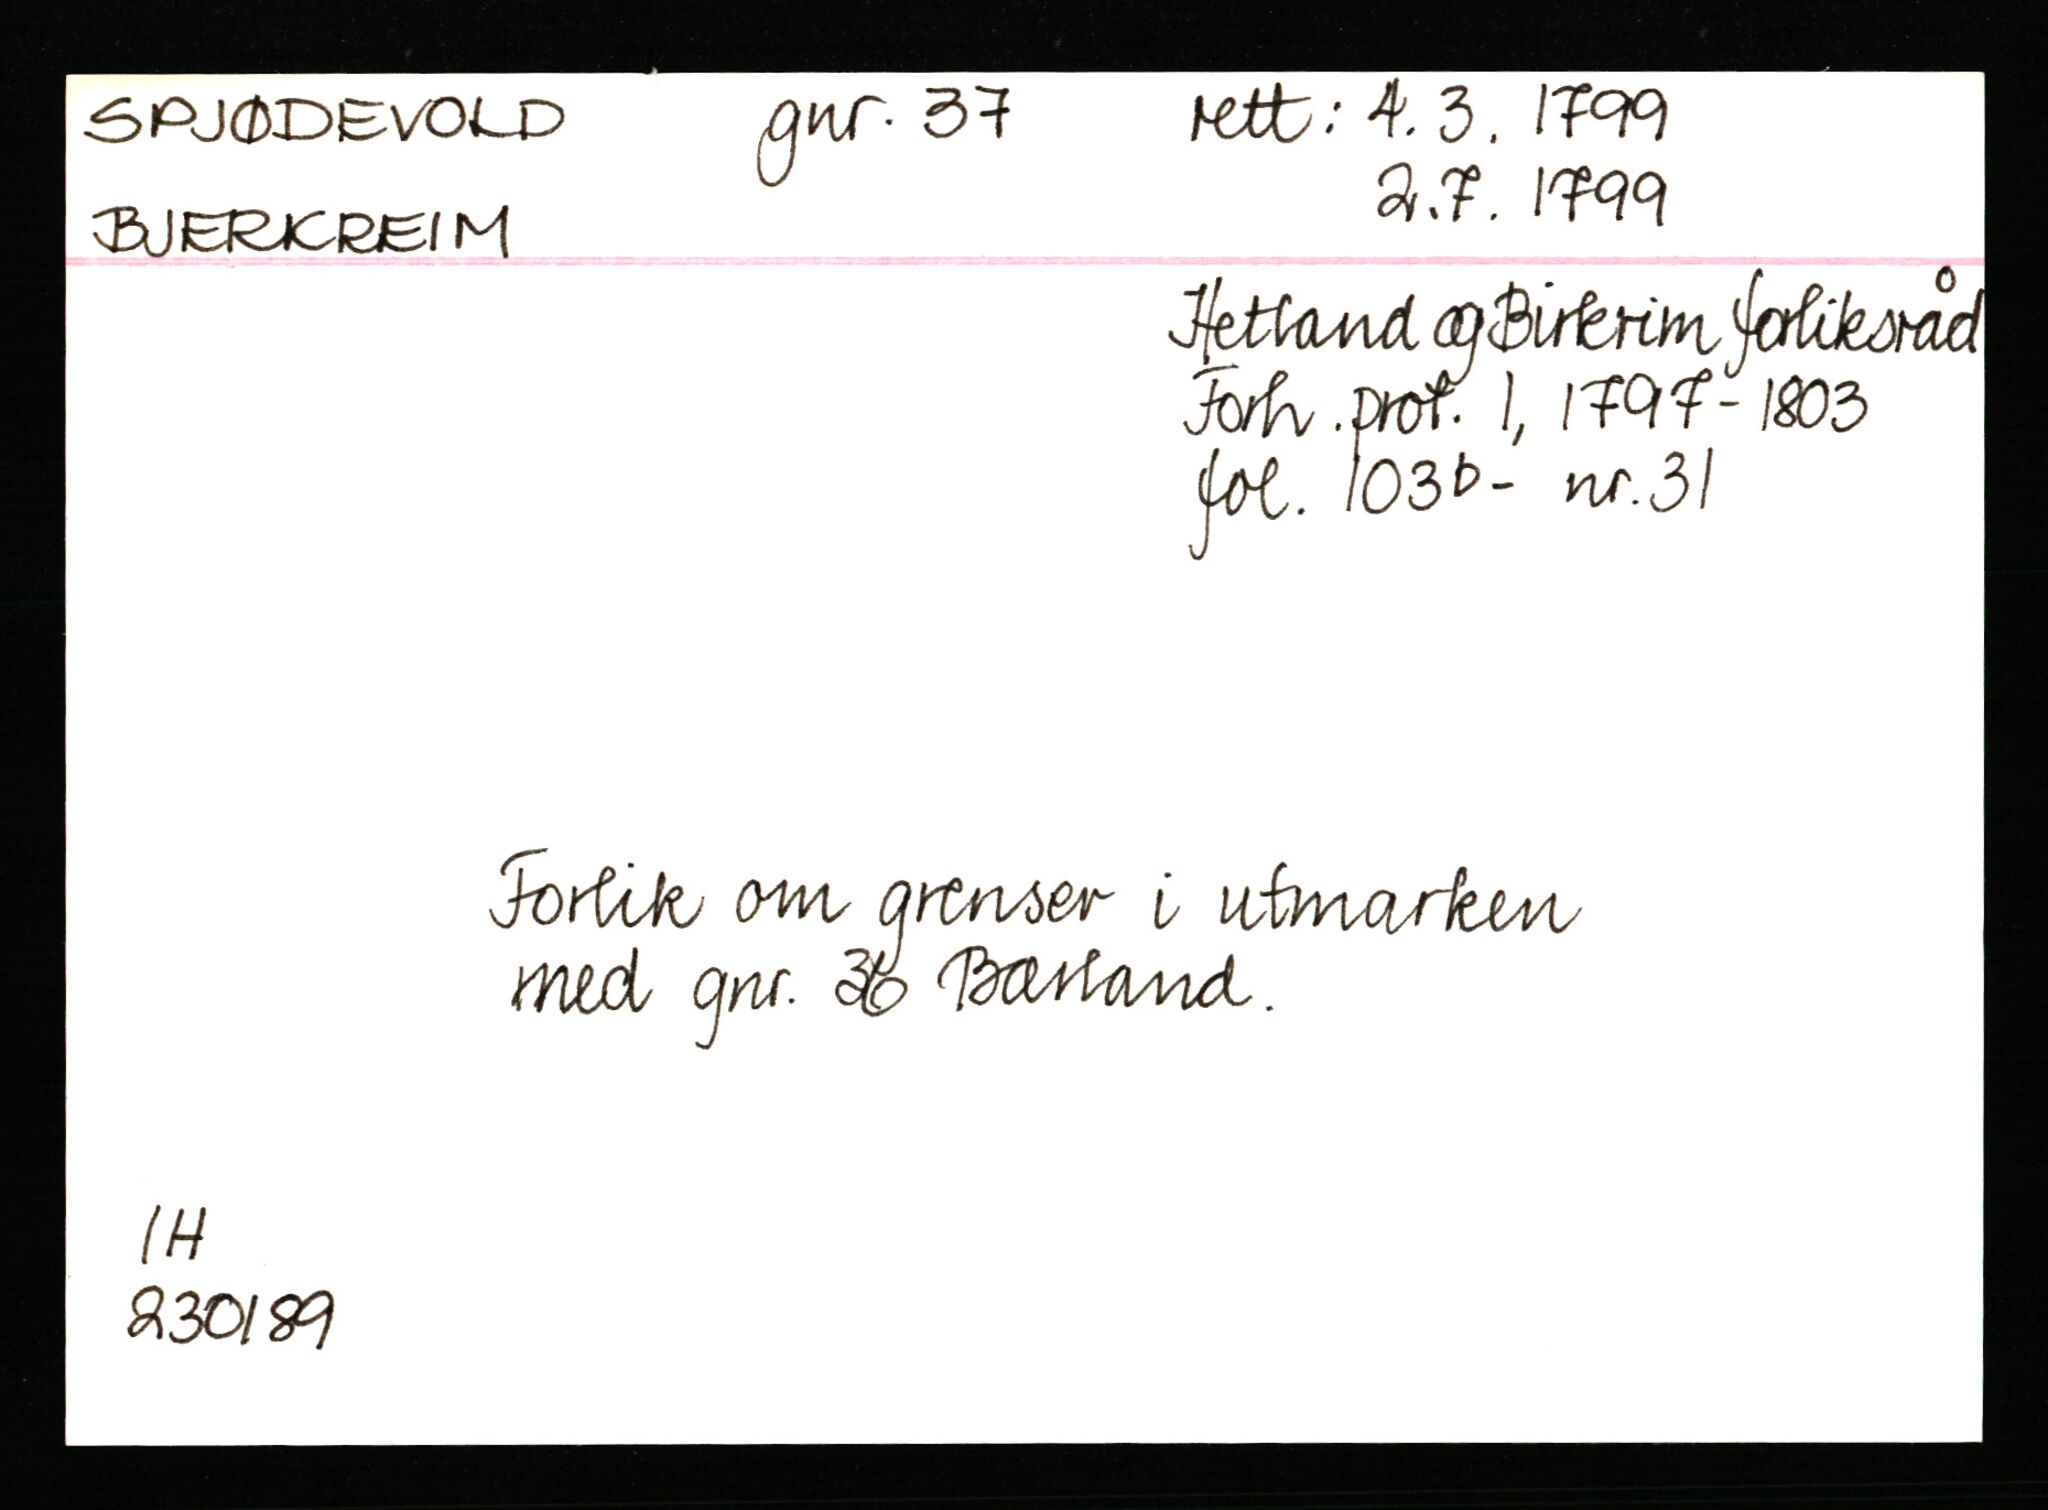 SPJØDEVOLD gnr. 37 rett: 4.3.1799
2.7.1799
BJERKREIM
Hetland og Birkrim forliksråd
Forh. prot. 1, 1797-1803
fol. 103b- nr. 31
Forlik om grenser i utmarken
med gnr. 36 Bærland.
IH
230189